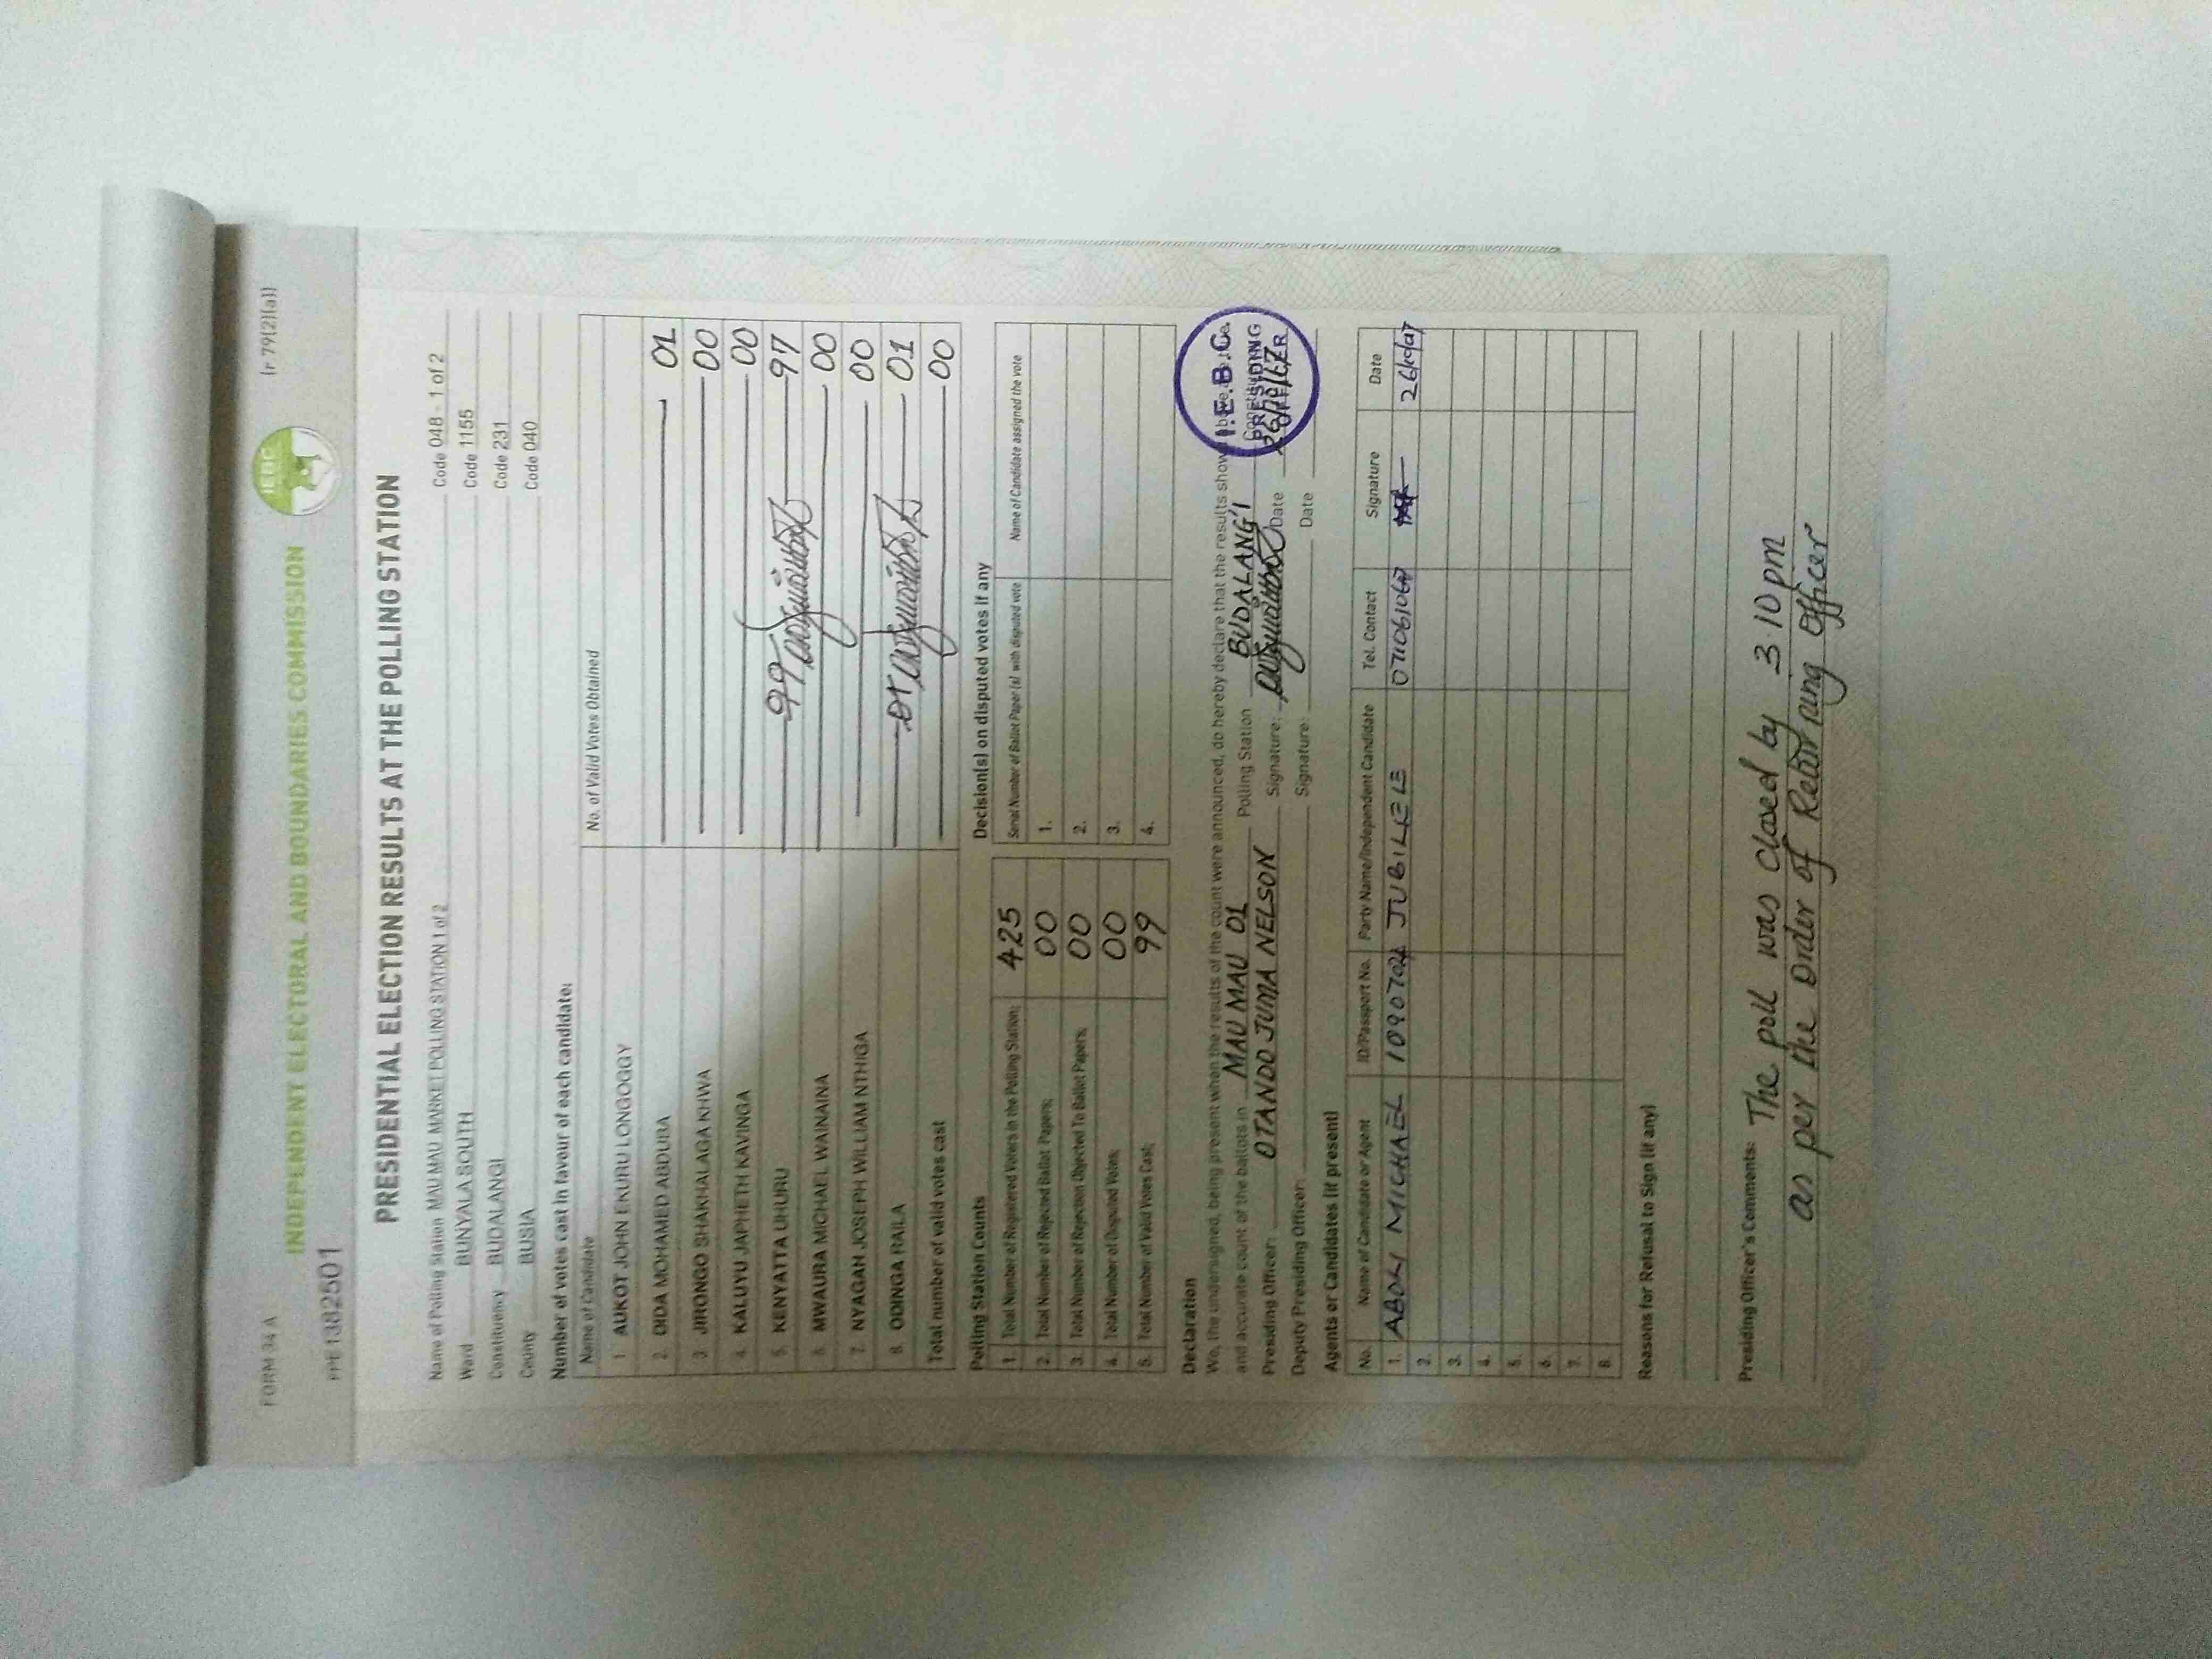 FORM 34 A
(r 79(2)(a))
IEBC
INDEPENDENT ELECTORAL AND BOUNDARIES COMMISSION
PPE 1382501
PRESIDENTIAL ELECTION RESULTS AT THE POLLING STATION
Name of Polling Station MAU MAU MARKET POLLING STATION 1 of 2 Code 048 - 1 of 2
Ward BUNYALA SOUTH Code 1155
Constituency BUDALANGI Code 231
County BUSIA Code 040
Number of votes cast in favour of each candidate:
Name of Candidate No. of Valid Votes Obtained
1 AUKOT JOHN EKURU LONGOGGY
2. DIDA MOHAMED ABDUBA 01
3 JIRONGO SHAKHALAGA KHWA 00
4. KALUYU JAPHETH KAVINGA 00
5. KENYATTA UHURU 99 97
6. MWAURA MICHAEL WAINAINA 00
7. NYAGAH JOSEPH WILLIAM NTHIGA 00
8. ODINGA RAILA 01
Total number of valid votes cast 00
Polling Station Counts
1 Total Number of Registered Voters in the Polling Station; 425
2. Total Number of Rejected Ballot Papers; 00
3. Total Number of Rejection Objected To Ballot Papers; 00
4. Total Number of Disputed Votes; 00
5. Total Number of Valid Votes Cast; 99
Decision(s) on disputed votes if any
Serial Number of Ballot Paper (s) with disputed vote Name of Candidate assigned the vote
1.
2.
3.
4.
Declaration
We, the undersigned, being present when the results of the count were announced, do hereby declare that the results show
and accurate count of the ballots in MAU MAU 01 Polling Station BUDALANG'I
Presiding Officer: OTANDO JUMA NELSON Signature: Date 26/10/17
Deputy Presiding Officer: Signature: Date
I.E.B.C.
PRESIDING
OFFICER
Agents or Candidates (if present)
No. Name of Candidate or Agent ID/Passport No. Party Name/Independent Candidate Tel. Contact Signature Date
1. MICHAEL JUBILEE
2.
3.
4.
5.
6.
7.
8.
Reasons for Refusal to Sign (if any)
Presiding Officer's Comments: The poll was closed by 3.10 pm
as per the Order of Returning Officer